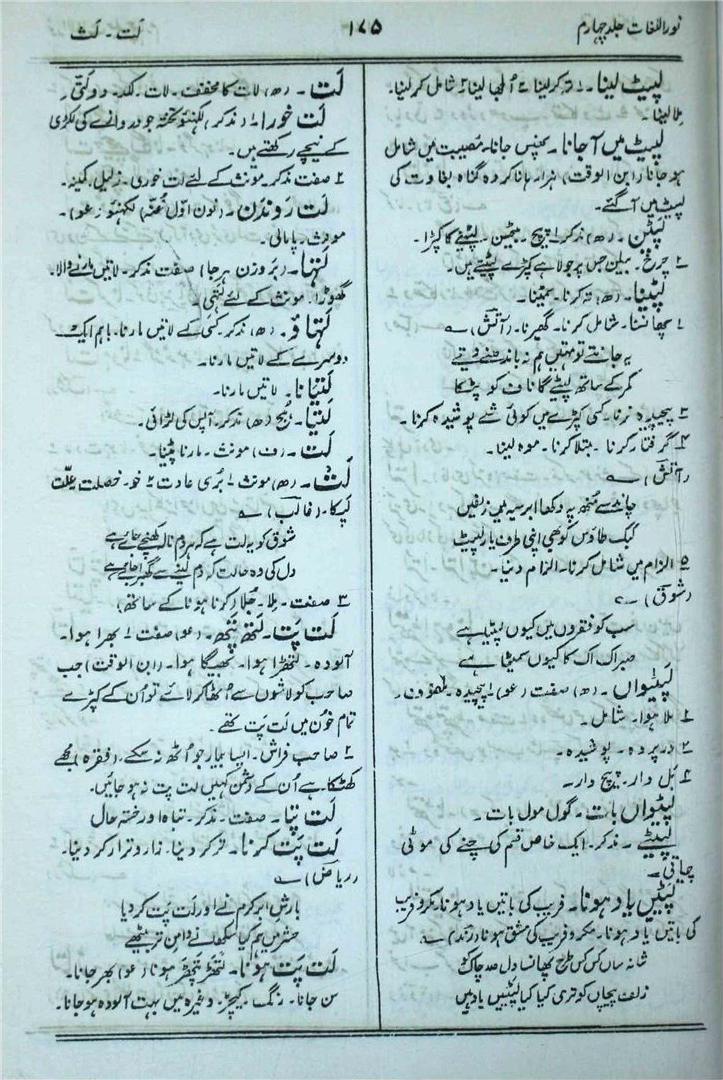 نور اللغات جلد چہارم
۱۷۵
لَت ۔ لَث
لپیٹ لینا۔ ۱ تہ کر لینا ۲ اُلجھا لینا ۳ شامل کر لینا۔
ملا لینا
لپیٹ میں آ جانا۔ پھنس جانا۔ مصیبت میں شامل
ہو جانا (ابن الوقت) ہزار ہا ناکردہ گناہ بغاوت کی
لپیٹ میں آ گئے۔
لپیٹن۔ (ھ) مذکر ۱ پیچ۔ بیٹھن۔ لپیٹنے کا کپڑا۔
۲ چرخ۔ بیلن جس پر جولاہے کپڑے لپیٹتے ہیں۔
لپیٹنا۔ (ھ) تہ کرنا۔ سمیٹنا۔
۱ پھانسنا۔ شامل کرنا۔ گھیرنا۔ (آتش) ؎
یہ جانتے تو تمہیں ہم نہ باندھنے دیتے
کمر کے ساتھ لپیٹے گا ناف کو پٹکا
۳ پیچیدہ کرنا۔ کسی کپڑے میں کوئی شے پوشیدہ کرنا۔
۴ گرفتار کرنا۔ مبتلا کرنا۔ موہ لینا۔
(آتش) ؎
چاند سے منھ پہ دکھا ابر سیہ سی زلفیں
کبک طاؤس کو بھی اپنی طرف یار لپیٹ
۵ الزام میں شامل کرنا۔ الزام دینا۔
(شوق) ؎
سب کو فقروں میں کیوں لپیٹا ہے
صبر اک اک کا کیوں سمیٹا ہے
لپیٹواں۔ (ھ) صفت (عو) ۱ پیچیدہ۔ ملفوف۔
۲ ملا ہوا۔ شامل۔
۳ در پردہ۔ پوشیدہ۔
۴ بَل دار۔ پیچ دار۔
لپیٹواں بات۔ گول مول بات۔
لپیٹے۔ مذکر۔ ایک خاص قسم کی چنے کی موٹی
چپاتی۔
لپیٹیں یاد ہونا۔ فریب کی باتیں یاد ہونا۔ مکر و فریب
کی باتیں یاد ہونا۔ مکر و فریب کی مشق ہونا (رند) ؎
شانہ ساں کس کس طرح پھانسا دل صد چاک کو
زلف پیچاں کو تری کیا کیا لپیٹیں یاد ہیں
لَت۔ (ھ) لات کا مخفف۔ لات۔ لکد۔ دو لتی۔
لَت خورا۔ ۱ (مذکر) لکھنؤ تختہ جو دروازے کی لکڑی
کے نیچے رکھتے ہیں۔
۲ صفت مذکر۔ مونث کے لئے لت خوری۔ ذلیل۔ کمینہ۔
لَت رَوندَن۔ (نون اوّل غنّہ) لکھنؤ۔ (عو)۔
مونث۔ پامالی۔
لَتہا۔ (بروزن برہا) صفت مذکر۔ لاتیں مارنے والا۔
گھوڑا۔ مونث کے لئے لتہی۔
لَتہاؤ۔ (ھ) مذکر۔ کسی کے لاتیں مارنا۔ باہم ایک
دوسرے کے لاتیں مارنا۔
لَتیانا۔ لاتیں مارنا۔
لَتیا۔ (ھ) مذکر۔ آپس کی لڑائی۔
لَت۔ (ف) مونث۔ مارنا پیٹنا۔
لَت۔ (ھ) مونث ۱ بُری عادت ۲ خو۔ خصلت۔ علّت
لپکا۔ (غالب) ؎
شوق کو یہ لت ہے کہ ہر دم نالہ کھینچے جائے ہے
دل کی وہ حالت کہ دم لینے سے گھبرا جائے ہے
۳ صفت۔ ملا۔ جُلا (کرنا ہونا کے ساتھ)
لَت پَت۔ لَتھ پَتھ۔ (عو) صفت ۱ بھرا ہوا۔
آلودہ۔ لتھڑا ہوا۔ بھیگا ہوا۔ (ابن الوقت) جب
صاحب کو لاشوں سے اُٹھا کر لائے تو اُن کے کپڑے
تمام خون میں لَت پَت تھے۔
۲ صاحب فراش۔ ایسا بیمار جو اُٹھ نہ سکے۔ (فقرہ) مجھے
کھٹکا ہے اُن کے دشمن کہیں لت پت نہ ہو جائیں۔
لَت پتا۔ صفت۔ مذکر۔ تباہ اور خستہ حال
لَت پَت کرنا۔ تر کر دینا۔ زار و نزار کر دینا۔
(ریاض) ؎
بارش ابر کرم نے اور لت پت کر دیا
حشر میں ہم کیا سکھانے دامن تر بیٹھے
لَت پَت ہونا۔ لَتھڑ پتھڑ ہونا (عو) بھر جانا۔
سن جانا۔ رنگ۔ کیچڑ۔ وغیرہ میں بہت آلودہ ہو جانا۔